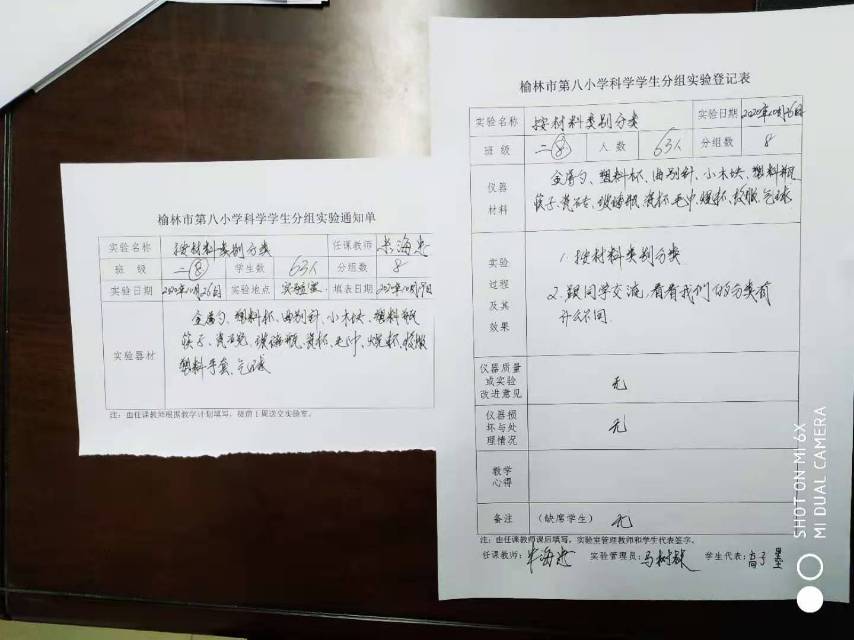 榆林市第八小学科学学生分组实验通知单
实验名称 按材料类别分类 任课教师
班 级 二⑧ 学生数 63人 分组数 8
实验日期 2020年10月26日 实验地点 实验室 填表日期 2020年10月19日
实验器材
金属勺、塑料杯、曲别针、小木块、塑料瓶
筷子、瓷 玻璃瓶、瓷杯、毛巾、烧杯、校服
塑料手套、气球
注：由任课教师根据教学计划填写，提前1周送交实验室。
榆林市第八小学科学学生分组实验登记表
实验名称 按材料类别分类 实验日期 2020年10月26日
班 级 二⑧ 人 数 63人 分组数 8
仪器
材料
金属勺、塑料杯、曲别针、小木块、塑料瓶
筷子、瓷砖、玻璃瓶、瓷杯、毛巾、烧杯、校服、气球
实验
过程
及其
效果
1. 按材料类别分类
2. 跟同学交流，看看我们的分类有
什么不同.
仪器质量
或实验
改进意见
无
仪器损
坏与处
理情况
无
教学
心得
备注 （缺席学生） 无
注：由任课教师课后填写，实验室管理教师和学生代表签字。
任课教师： 实验管理员：马树林 学生代表：高子墨
SHOT ON MI 6X
MI DUAL CAMERA